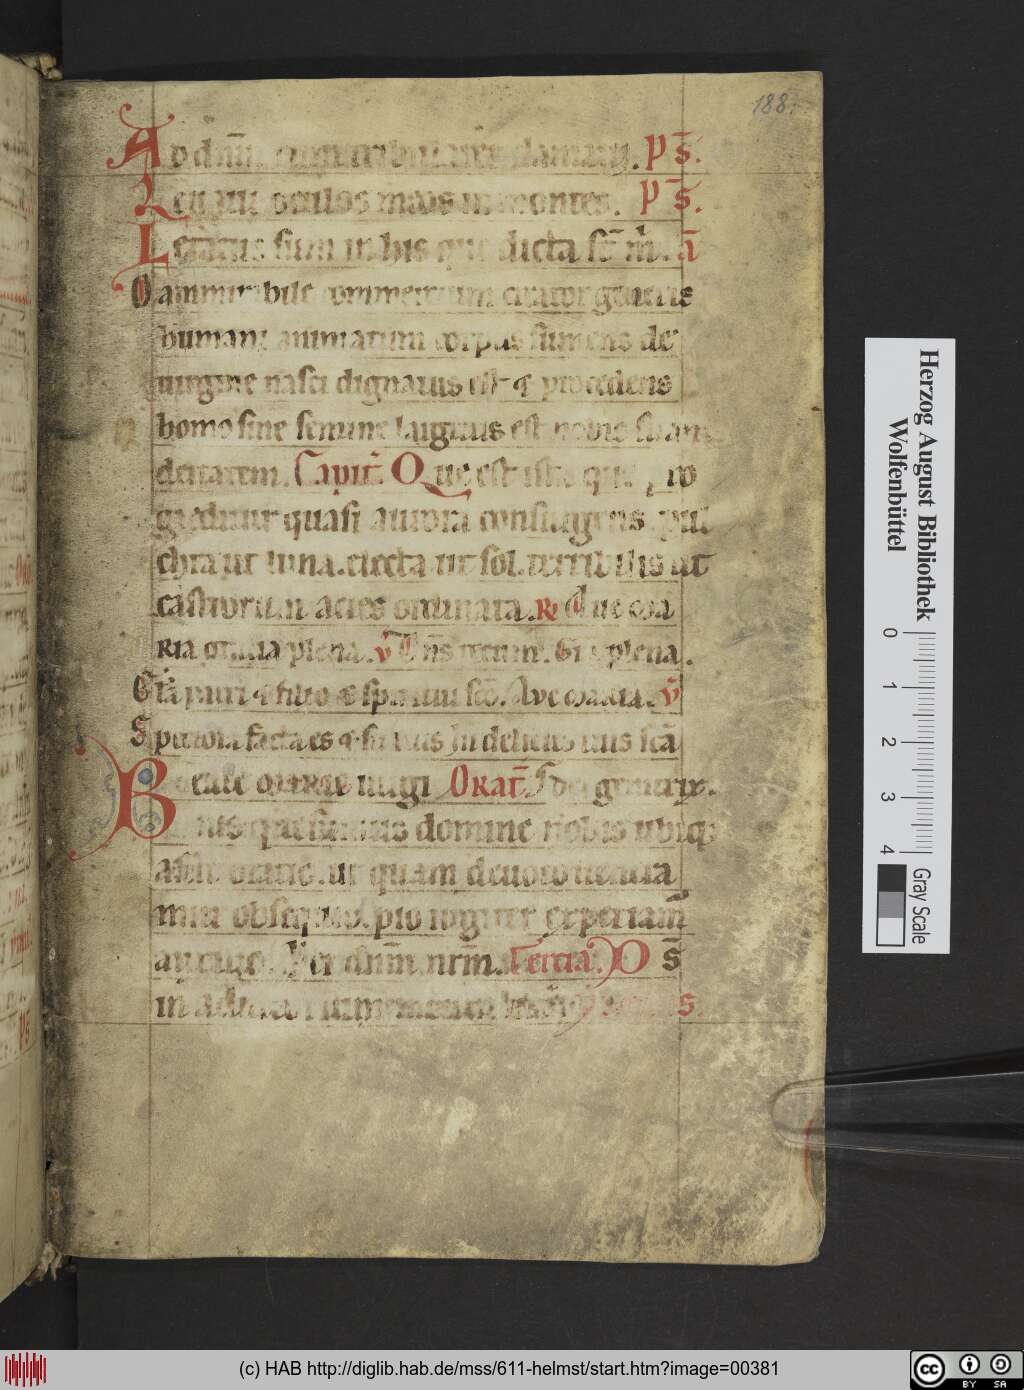 188.
Ad dn̄m cum tribularer clamavi. ps̄.
Levavi oculos meos in montes. ps̄.
Letatus sum in his que dicta st̄ m̄. ā
O ammirabile commercium creator generis
humani animatum corpus sumens de
uirgine nasci dignatus est ⁊ procedens
homo sine semine largitus est nobis suam
deitatem. Capit̄. Que est ista que pro
greditur quasi aurora consurgens. pul
chra ut luna. electa ut sol. terribilis ut
castrorum acies ordinata. R Aue ma
ria gratia plena. v̄ Dn̄s tecum. Gr̄a plena.
Gl̄a patri ⁊ filio ⁊ spiritui sc̄o. Aue maria. v̄
Speciosa facta es ⁊ suauis In deliciis tuis sc̄a
Beate marie uirgi Orat̄. s̄ dei genitrix.
nis quesumus domine nobis ubiq;
assit oratio. ut quam deuoto uenera
mur obsequio. pio iugiter experiam̄
auxilio. Per dn̄m nr̄m. Tercia. D s̄
in adiutorium meum inten s.
Herzog August Bibliothek
Wolfenbüttel
0 1 2 3 4
Gray Scale
(c) HAB http://diglib.hab.de/mss/611-helmst/start.htm?image=00381
cc BY SA